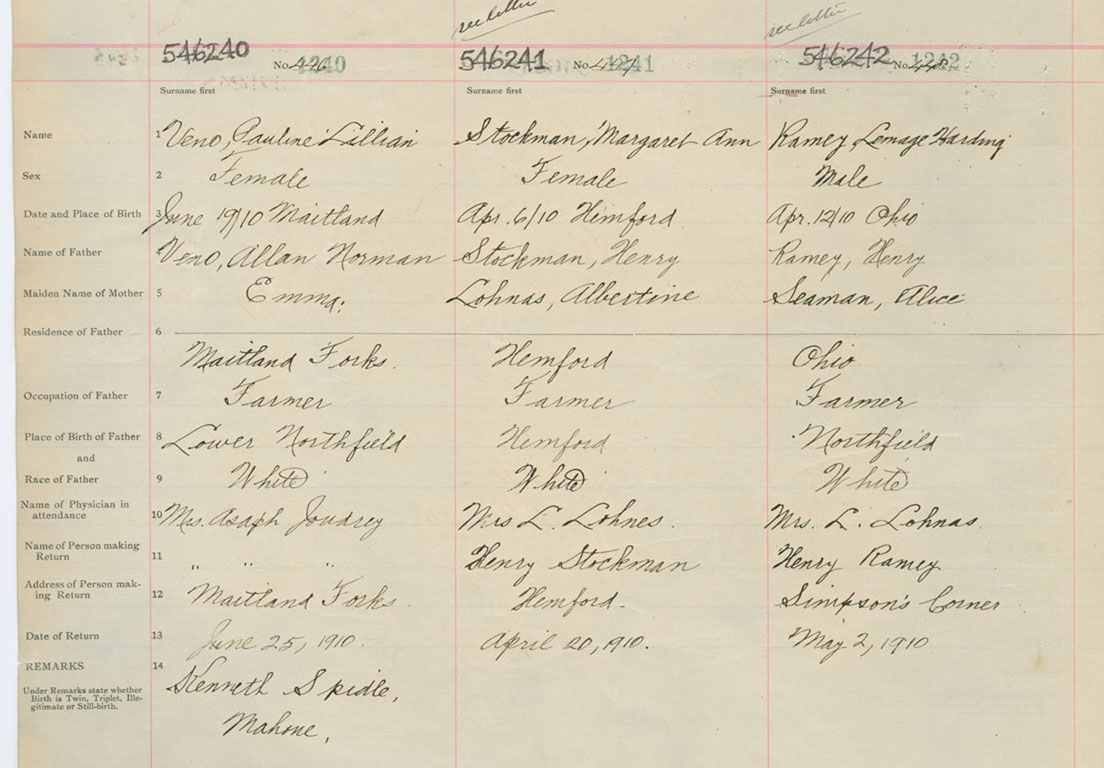 see letter see letter
546240 No. 1240 546241 No. 1241 546242 No. 1242
Surname first Surname first Surname first
Name 1 Veno, Pauline Lillian Stockman, Margaret Ann Ramey, Lemage Harding
Sex 2 Female Female Male
Date and Place of Birth 3 June 19/10 Maitland Apr. 6/10 Hemford. Apr. 12/10 Ohio
Name of Father 4 Veno, Allan Norman Stockman, Henry Ramey, Henry
Maiden Name of Mother 5 Emma. Lohnas, Albertine Seaman, Alice
Residence of Father 6
Maitland Forks. Hemford Ohio
Occupation of Father 7 Farmer Farmer Farmer
Place of Birth of Father 8 Lower Northfield Hemford Northfield
and
Race of Father 9 White White White
Name of Physician in
attendance 10 Mrs. Asaph Joudrey Mrs L. Lohnes. Mrs. L. Lohnas.
Name of Person making
Return 11 " " " Henry Stockman Henry Ramey
Address of Person mak-
ing Return 12 Maitland Forks. Hemford. Simpson's Corner
Date of Return 13 June 25, 1910. April 20, 1910. May 2, 1910.
REMARKS 14
Kenneth Spidle,
Under Remarks state whether
Birth is Twin, Triplet, Ille-
gitimate or Still-birth.
Mahone,